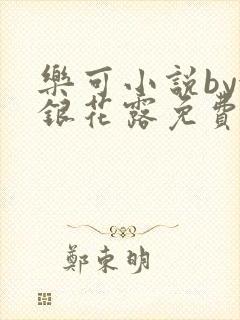 樂可小説by
銀花露免費
鄭東明